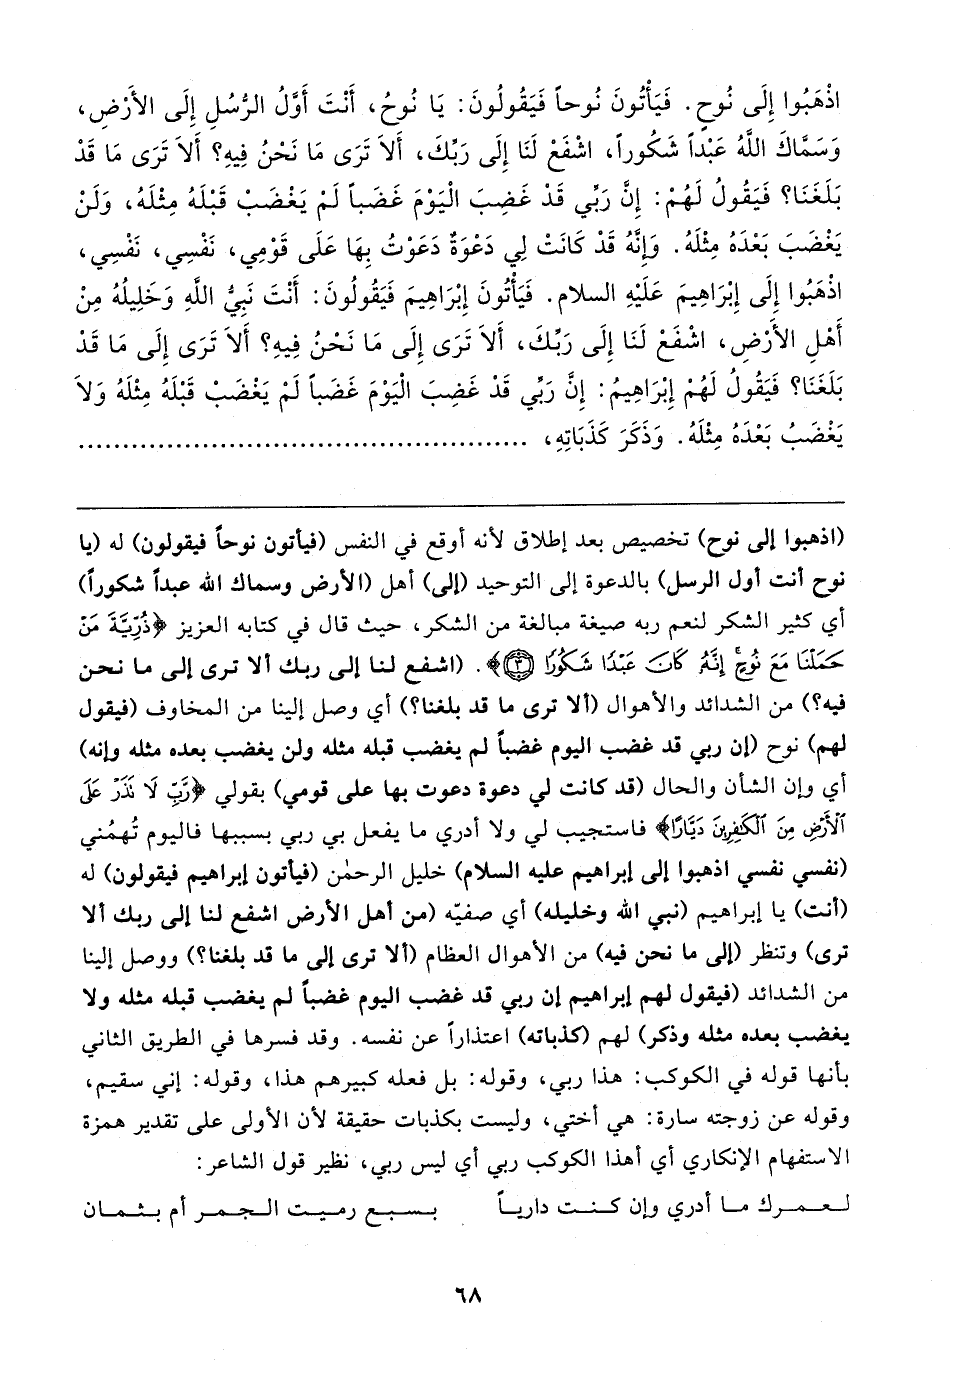 اذْهَبُوا إِلَى نُوحٍ. فَيَأْتُونَ نُوحاً فَيَقُولُونَ: يَا نُوحُ، أَنْتَ أَوَّلُ الرُّسُلِ إِلَى الأَرْضِ،
وَسَمَّاكَ اللَّهُ عَبْداً شَكُوراً، اشْفَعْ لَنَا إِلَى رَبِّكَ، أَلاَ تَرَى مَا نَحْنُ فِيهِ؟ أَلاَ تَرَى مَا قَدْ
بَلَغَنَا؟ فَيَقُولُ لَهُمْ: إِنَّ رَبِّي قَدْ غَضِبَ الْيَوْمَ غَضَباً لَمْ يَغْضَبْ قَبْلَهُ مِثْلَهُ، وَلَنْ
يَغْضَبَ بَعْدَهُ مِثْلَهُ. وَإِنَّهُ قَدْ كَانَتْ لِي دَعْوَةٌ دَعَوْتُ بِهَا عَلَى قَوْمِي، نَفْسِي، نَفْسِي،
اذْهَبُوا إِلَى إِبْرَاهِيمَ عَلَيْهِ السلام. فَيَأْتُونَ إِبْرَاهِيمَ فَيَقُولُونَ: أَنْتَ نَبِيُّ اللَّهِ وَخَلِيلُهُ مِنْ
أَهْلِ الأَرْضِ، اشْفَعْ لَنَا إِلَى رَبِّكَ، أَلاَ تَرَى إِلَى مَا نَحْنُ فِيهِ؟ أَلاَ تَرَى إِلَى مَا قَدْ
بَلَغَنَا؟ فَيَقُولُ لَهُمْ إِبْرَاهِيمُ: إِنَّ رَبِّي قَدْ غَضِبَ الْيَوْمَ غَضَباً لَمْ يَغْضَبْ قَبْلَهُ مِثْلَهُ وَلاَ
يَغْضَبُ بَعْدَهُ مِثْلَهُ. وَذَكَرَ كَذَبَاتِهِ، ..................................................
(اذهبوا إلى نوح) تخصيص بعد إطلاق لأنه أوقع في النفس (فيأتون نوحاً فيقولون) له (يا
نوح أنت أول الرسل) بالدعوة إلى التوحيد (إلى) أهل (الأرض وسماك الله عبداً شكوراً)
أي كثير الشكر لنعم ربه صيغة مبالغة من الشكر، حيث قال في كتابه العزيز ﴿ذُرِّيَّةَ مَنْ
حَمَلْنَا مَعَ نُوحٍ إِنَّهُ كَانَ عَبْدًا شَكُورًا ٣﴾. (اشفع لنا إلى ربك ألا ترى إلى ما نحن
فيه؟) من الشدائد والأهوال (ألا ترى ما قد بلغنا؟) أي وصل إلينا من المخاوف (فيقول
لهم) نوح (إن ربي قد غضب اليوم غضباً لم يغضب قبله مثله ولن يغضب بعده مثله وإنه)
أي وإن الشأن والحال (قد كانت لي دعوة دعوت بها على قومي) بقولي ﴿رَّبِّ لَا نَذَرْ عَلَى
ٱلْأَرْضِ مِنَ ٱلْكَٰفِرِينَ دَيَّارًا﴾ فاستجيب لي ولا أدري ما يفعل بي ربي بسببها فاليوم تُهمُّني
(نفسي نفسي اذهبوا إلى إبراهيم عليه السلام) خليل الرحمٰن (فيأتون إبراهيم فيقولون) له
(أنت) يا إبراهيم (نبي الله وخليله) أي صفيّه (من أهل الأرض اشفع لنا إلى ربك ألا
ترى) وتنظر (إلى ما نحن فيه) من الأهوال العظام (ألا ترى إلى ما قد بلغنا؟) ووصل إلينا
من الشدائد (فيقول لهم إبراهيم إن ربي قد غضب اليوم غضباً لم يغضب قبله مثله ولا
يغضب بعده مثله وذكر) لهم (كذباته) اعتذاراً عن نفسه. وقد فسرها في الطريق الثاني
بأنها قوله في الكوكب: هذا ربي، وقوله: بل فعله كبيرهم هذا، وقوله: إني سقيم،
وقوله عن زوجته سارة: هي أختي، وليست بكذبات حقيقة لأن الأولى على تقدير همزة
الاستفهام الإنكاري أي أهذا الكوكب ربي أي ليس ربي، نظير قول الشاعر:
لعمرك ما أدري وإن كنت دارياً بسبع رميت الجمر أم بثمان
٦٨